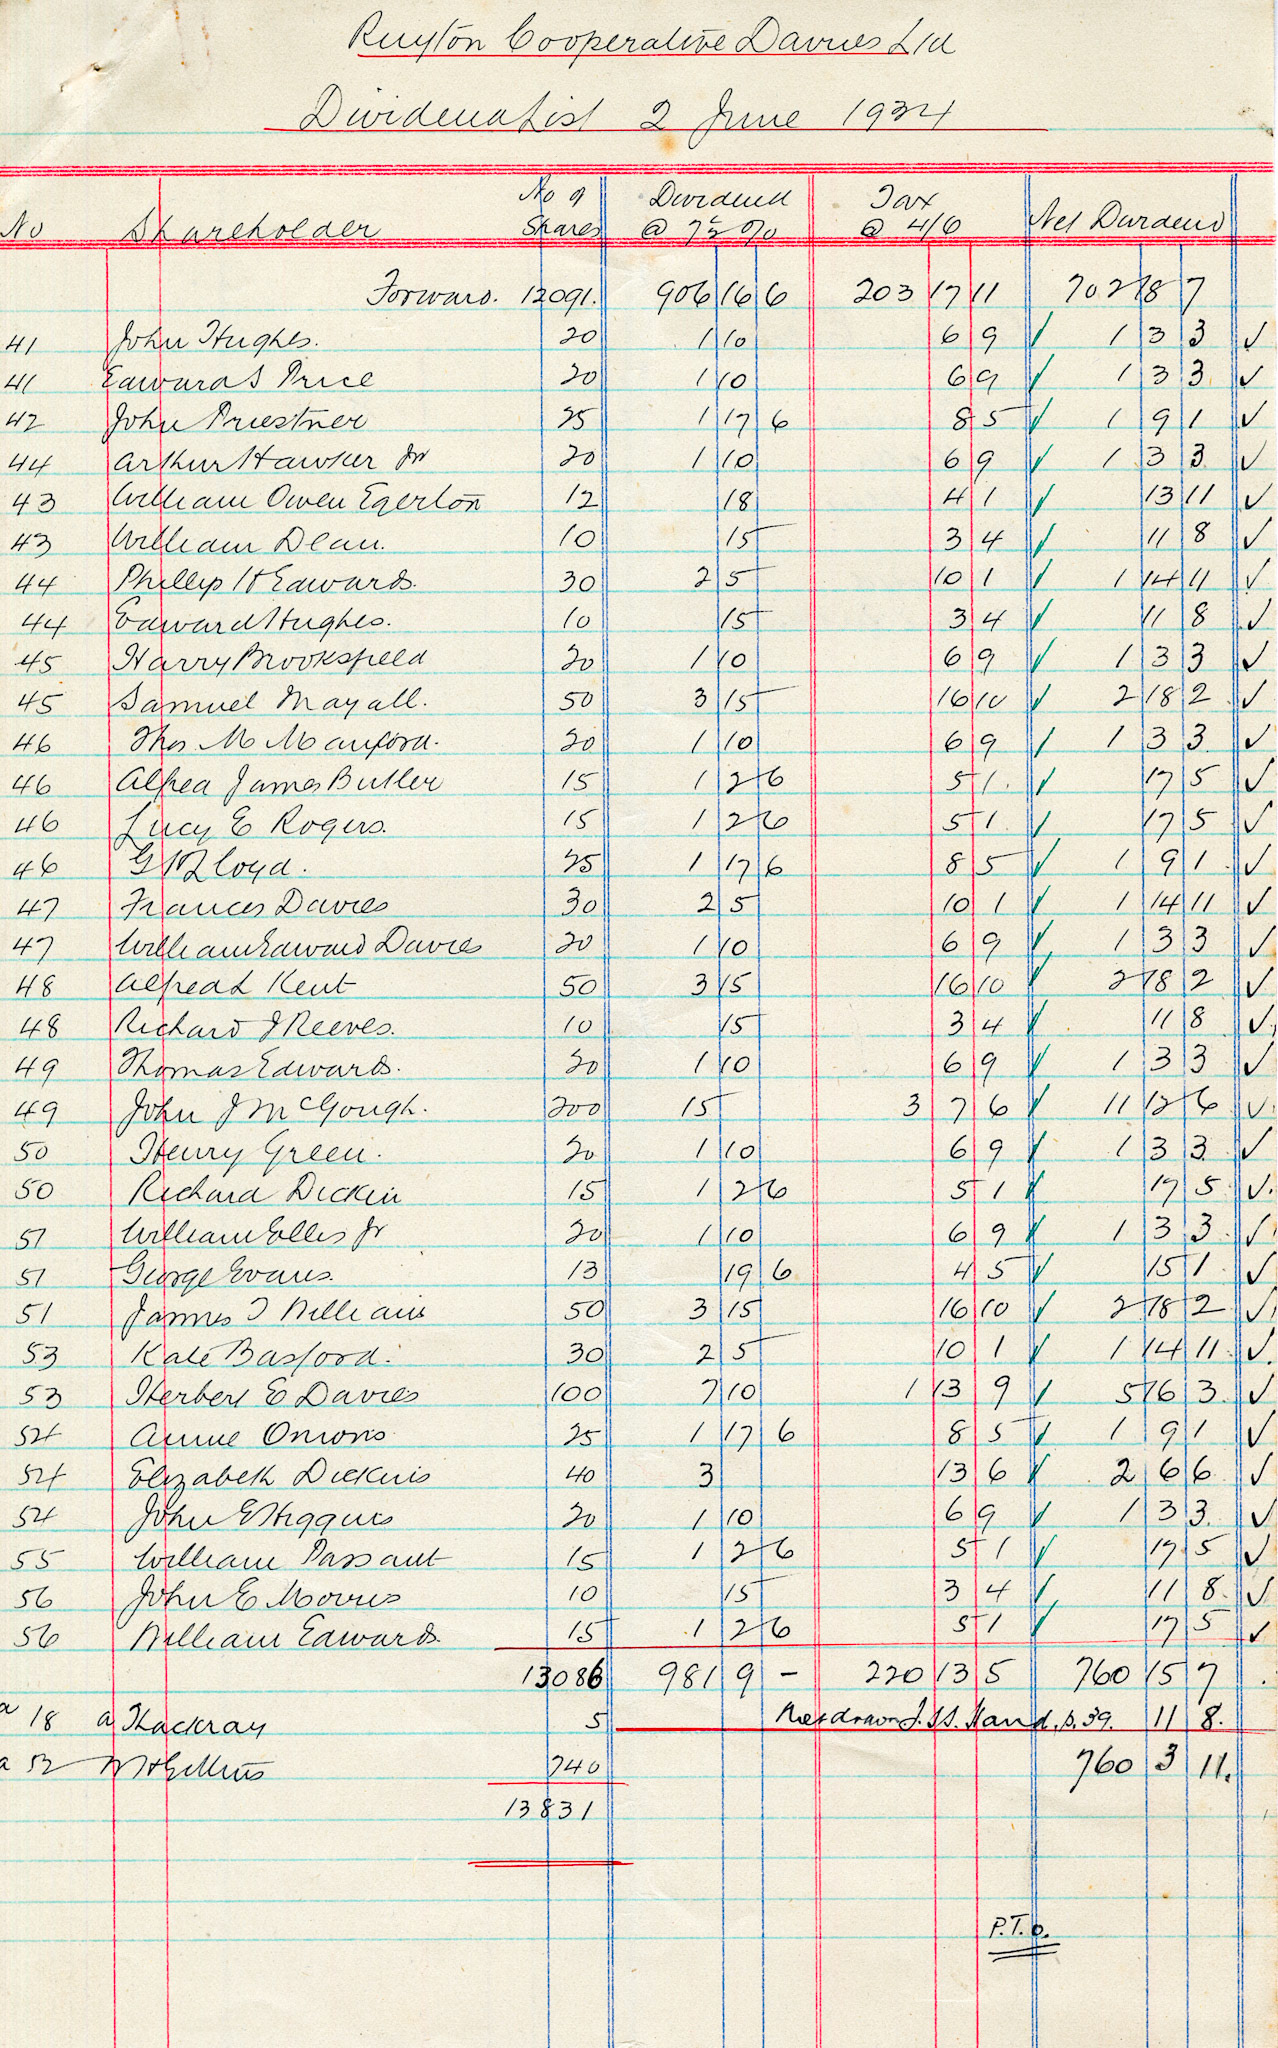 Ruyton Cooperative Dairies Ltd
Dividend List 2 June 1934
No Shareholder No of Shares Dividend @ 7½% Tax @ 4/6 Net Dividend
Forward. 12091. 906 16 6 203 17 11 702 18 7
41 John Hughes. 20 1 10 6 9 ✓ 1 3 3 ✓
41 Edward S Price 20 1 10 6 9 ✓ 1 3 3 ✓
42 John Priestner 25 1 17 6 8 5 ✓ 1 9 1 ✓
44 Arthur Hawker Jr 20 1 10 6 9 ✓ 1 3 3 ✓
43 William Owen Egerton 12 18 4 1 ✓ 13 11 ✓
43 William Dean. 10 15 3 4 ✓ 11 8 ✓
44 Phillip H Edwards. 30 2 5 10 1 ✓ 1 14 11 ✓
44 Edward Hughes. 10 15 3 4 ✓ 11 8 ✓
45 Harry Brooksfield 20 1 10 6 9 ✓ 1 3 3 ✓
45 Samuel Mayall. 50 3 15 16 10 ✓ 2 18 2 ✓
46 Thos M Manford. 20 1 10 6 9 ✓ 1 3 3 ✓
46 Alfred James Butler 15 1 2 6 5 1. ✓ 17 5 ✓
46 Lucy E Rogers. 15 1 2 6 5 1. ✓ 17 5 ✓
46 G Lloyd. 25 1 17 6 8 5 ✓ 1 9 1 ✓
47 Frances Davies 30 2 5 10 1 ✓ 1 14 11 ✓
47 William Edward Davies 20 1 10 6 9 ✓ 1 3 3 ✓
48 Alfred L Kent 50 3 15 16 10 ✓ 2 18 2 ✓
48 Richard J Reeves. 10 15 3 4 ✓ 11 8 ✓
49 Thomas Edwards. 20 1 10 6 9 ✓ 1 3 3 ✓
49 John J McGough. 200 15 3 7 6 ✓ 11 12 6 ✓
50 Henry Green. 20 1 10 6 9 ✓ 1 3 3 ✓
50 Richard Dickin 15 1 2 6 5 1 ✓ 17 5 ✓
51 William Ellis Jr 20 1 10 6 9 ✓ 1 3 3 ✓
51 George Evans. 13 19 6 4 5 ✓ 15 1 ✓
51 James T William 50 3 15 16 10 ✓ 2 18 2 ✓
53 Kate Basford. 30 2 5 10 1 ✓ 1 14 11 ✓
53 Herbert E Davies 100 7 10 1 13 9 ✓ 5 16 3 ✓
54 Annie Onions 25 1 17 6 8 5 ✓ 1 9 1 ✓
54 Elizabeth Dickins 40 3 13 6 ✓ 2 6 6 ✓
54 John E Higgins 20 1 10 6 9 ✓ 1 3 3. ✓
55 William Passant 15 1 2 6 5 1 ✓ 17 5 ✓
56 John E Morris 10 15 3 4 ✓ 11 8. ✓
56 William Edwards. 15 1 2 6 5 1 ✓ 17 5 ✓
13086 981 9 - 220 13 5 760 15 7
a 18 A Thackray 5 Hand, p. 39. 11 8.
a 52 740 760 3 11.
13831
P.T.O.